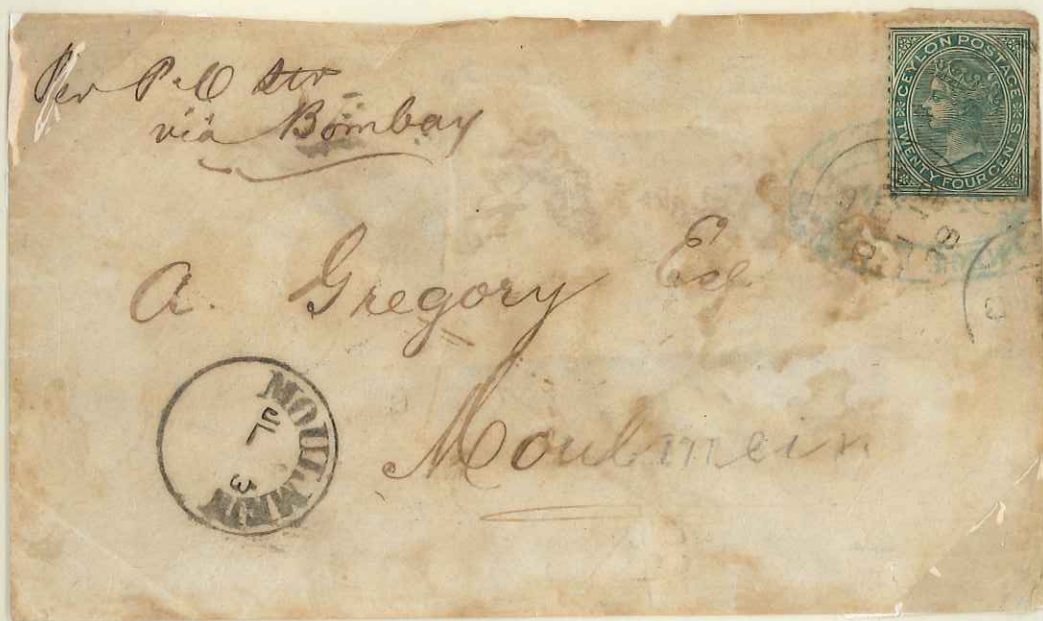 Per P & O Str
via Bombay
CEYLON POSTAGE
TWENTY FOUR CENTS
A. Gregory Esq
Moulmein
MOULMEIN
JL
3